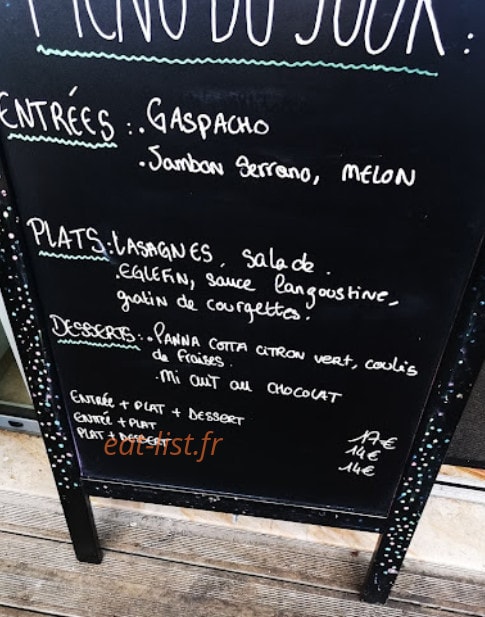 MENU DU JOUR:
ENTRÉES: . GASPACHO
. Jambon Serrano, MELON
PLATS: LASAGNES, salade.
. EGLEFIN, sauce langoustine,
gratin de courgettes.
DESSERTS: . PANNA COTTA CITRON VERT, coulis
de fraises.
. Mi CUIT au CHOCOLAT
ENTRÉE + PLAT + DESSERT 17€
ENTRÉE + PLAT 14€
PLAT + DESSERT 14€
eat-list.fr